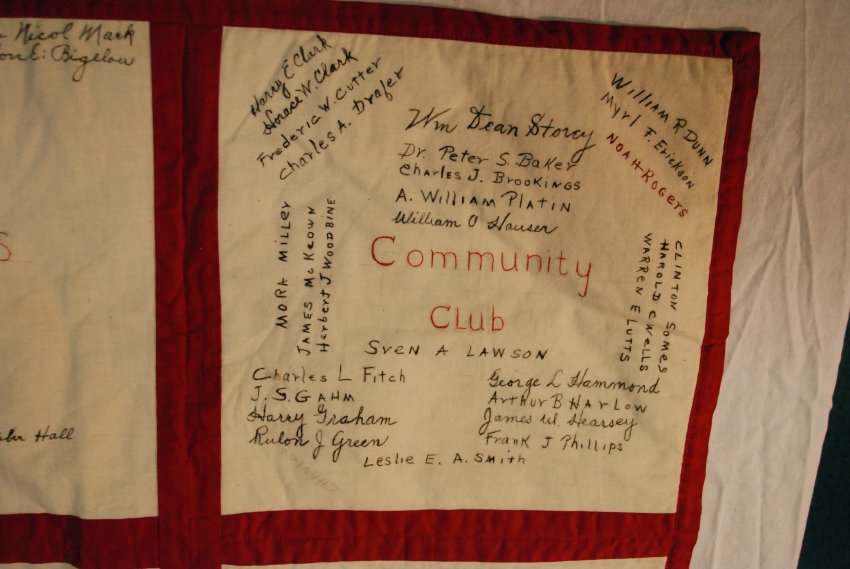 Nicol Mark
Bigelow
S
Hall
Harry E Clark
Horace N. Clark
Frederic W. Cutter
Charles A. Draper
Wm Dean Storey
Dr. Peter S. Baker
Charles J. Brookings
A. William Platin
William O Hauser
William R Dunn
Myrl F. Erickson
Noah Rogers
Mora Miller
James McKeown
Herbert J Woodbine
Community
Club
Clinton Somes
Harold C Wells
Warren E Lutts
Sven A Lawson
Charles L Fitch
J. S. Gahm
Harry Graham
Rulon J Green
George L Hammond
Arthur B Harlow
James W. Hearsey
Frank J Phillips
Leslie E. A. Smith